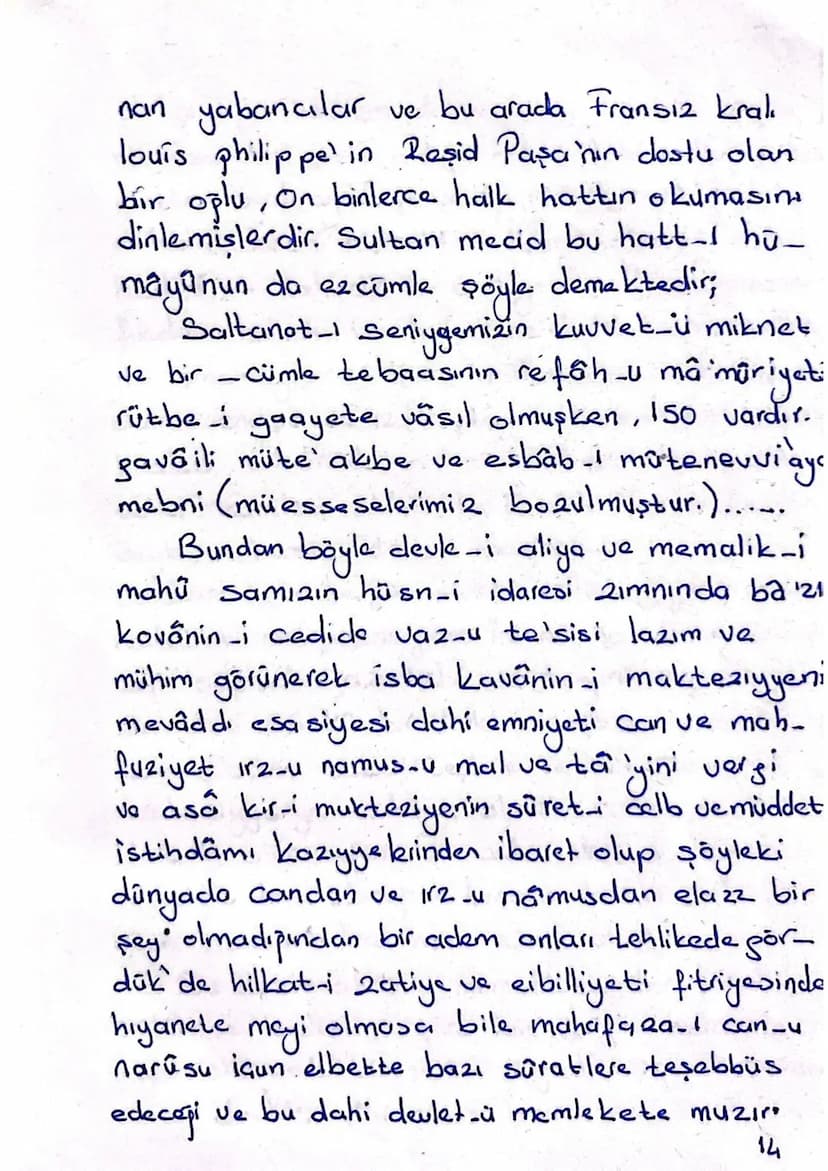 nan yabancılar ve bu arada Fransız kralı
louîs philippe'in Reşid Paşa'nın dostu olan
bir oğlu, On binlerce halk hattın okumasını
dinlemişlerdir. Sultan mecid bu hatt-ı hü-
mâyûnun da ezcümle şöyle demektedir;
Saltanat-ı seniyyemizin kuvvet-ü miknet
ve bir-cümle tebaasının refâh-u mâ'mûriyeti
rütbe-i gaayete vâsıl olmuşken, 150 vardır.
gavâili müte'akıbe ve esbâb-ı mütenevvi'aya
mebni (müesseselerimiz bozulmuştur.)......
Bundan böyle devle-i aliya ve memalik-i
mahû samızın hüsn-i idaresi zımnında ba'zı
kovânin-i cedide vaz-u te'sisi lazım ve
mühim görünerek isba kavânin-i makteziyyeni
mevâddı esasiyesi dahi emniyeti can ve mah-
fuziyet ırz-u namus-u mal ve tâ'yini vergi
ve asâ kir-i mukteziyenin sûret-i celb ve müddet
istihdâmı kazıyyelerinden ibaret olup şöyleki
dünyada candan ve ırz-u nâmusdan elazz bir
şey olmadığından bir adem onları tehlikede gör-
dük'de hilkat-i zatiye ve cibilliyeti fitriyesinde
hıyanete meyi olmasa bile mahafaza-ı can-u
narûsu içun elbette bazı sûratlere teşebbüs
edeceği ve bu dahi devlet-ü memlekete muzır
14